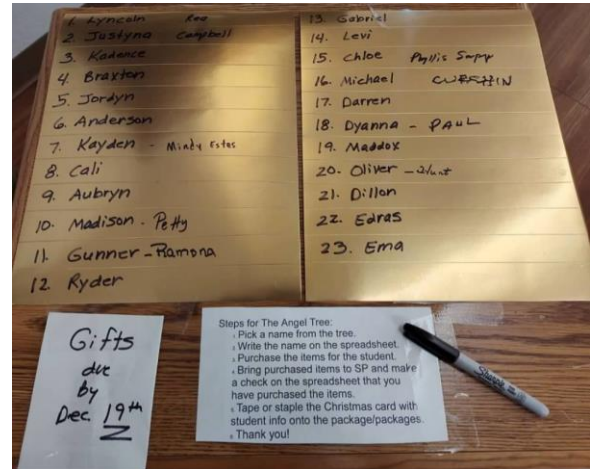 1. Lyncoln
2. Justyna Campbell
3. Kadence
4. Braxton
5. Jordyn
6. Anderson
7. Kayden - Mindy Estes
8. Cali
9. Aubryn
10. Madison - Petty
11. Gunner - Ramona
12. Ryder
13. Gabriel
14. Levi
15. Chloe Phyllis
16. Michael
17. Darren
18. Dyanna - PAUL
19. Maddox
20. Oliver -
21. Dillon
22. Edras
23. Ema
Gifts
due
by
Dec. 19th
Steps for The Angel Tree:
Pick a name from the tree.
Write the name on the spreadsheet.
Purchase the items for the student.
Bring purchased items to SP and make
a check on the spreadsheet that you
have purchased the items.
Tape or staple the Christmas card with
student info onto the package/packages.
Thank you!
Sharpie